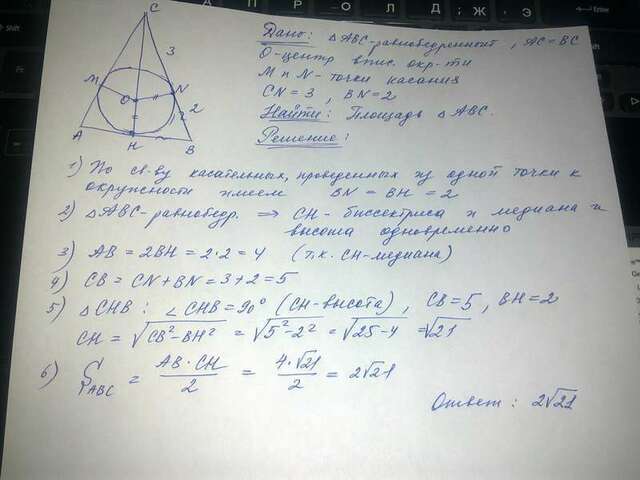 C
3
M
N
O
2
A
H
B
Дано: △ABC-равнобедренный, AC=BC
O-центр впис. окр-ти
M и N-точки касания
CN=3, BN=2
Найти: Площадь △ABC.
Решение:
1) По св-ву касательных, проведенных из одной точки к
окружности имеем BN=BH=2
2) △ABC-равнобедр. ⇒ CH-биссектриса и медиана и
высота одновременно
3) AB=2BH=2·2=4 (т.к. CH-медиана)
4) CB=CN+BN=3+2=5
5) △CHB: ∠CHB=90° (CH-высота), CB=5, BH=2
CH=√(CB²-BH²)=√(5²-2²)=√(25-4)=√21
6) S_ABC = AB·CH/2 = 4·√21/2 = 2√21
Ответ: 2√21